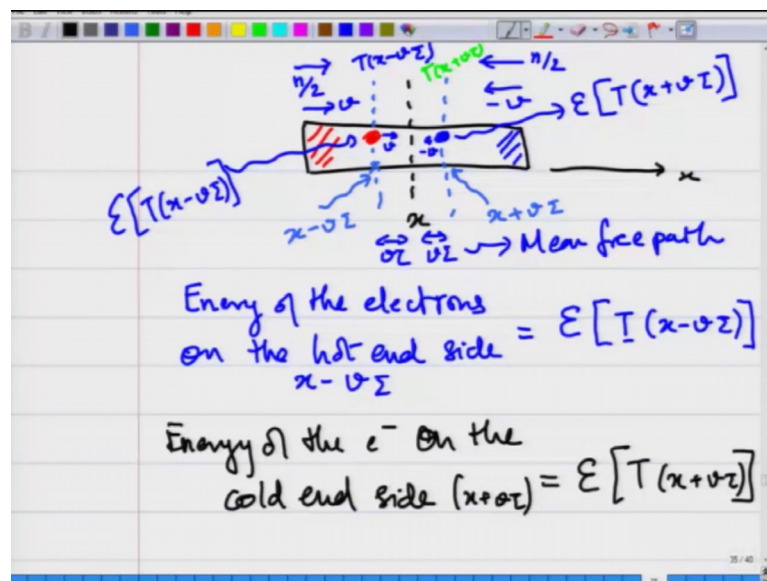 T(x-vτ) T(x+vτ)
n/2 n/2
v -v
v -v
ε[T(x+vτ)]
ε[T(x-vτ)]
x
x-vτ x x+vτ
vτ vτ → Mean free path
Energy of the electrons
on the hot end side = ε[T(x-vτ)]
x-vτ
Energy of the e⁻ on the
cold end side (x+vτ) = ε[T(x+vτ)]
35/40